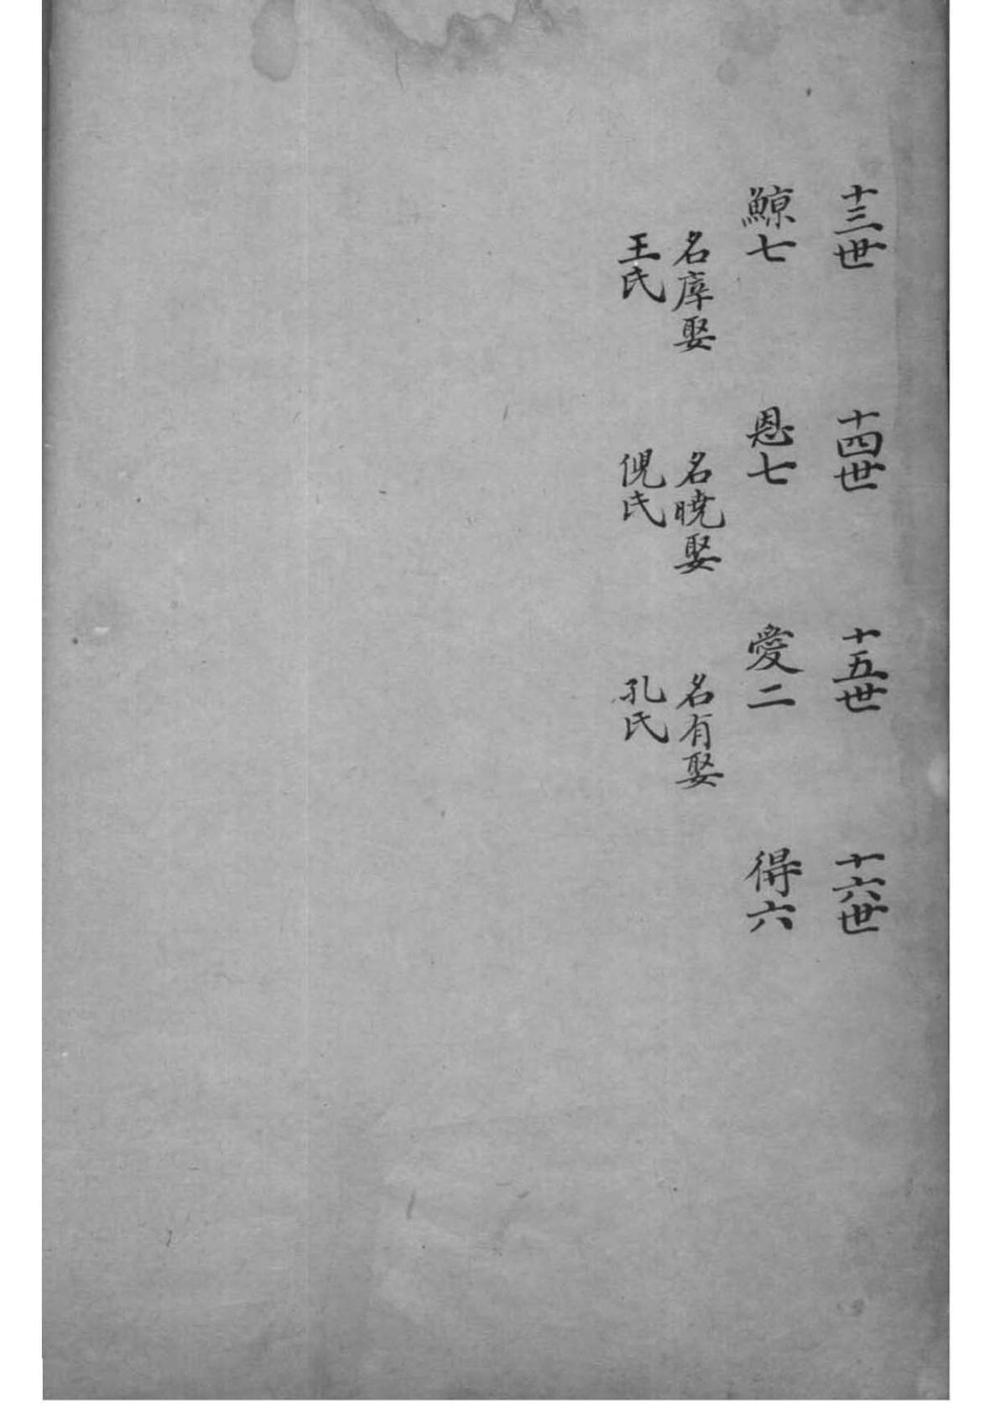 十三世
十四世
十五世
十六世
鯨七
恩七
愛二
得六
名庠娶
王氏
名曉娶
倪氏
名有娶
孔氏